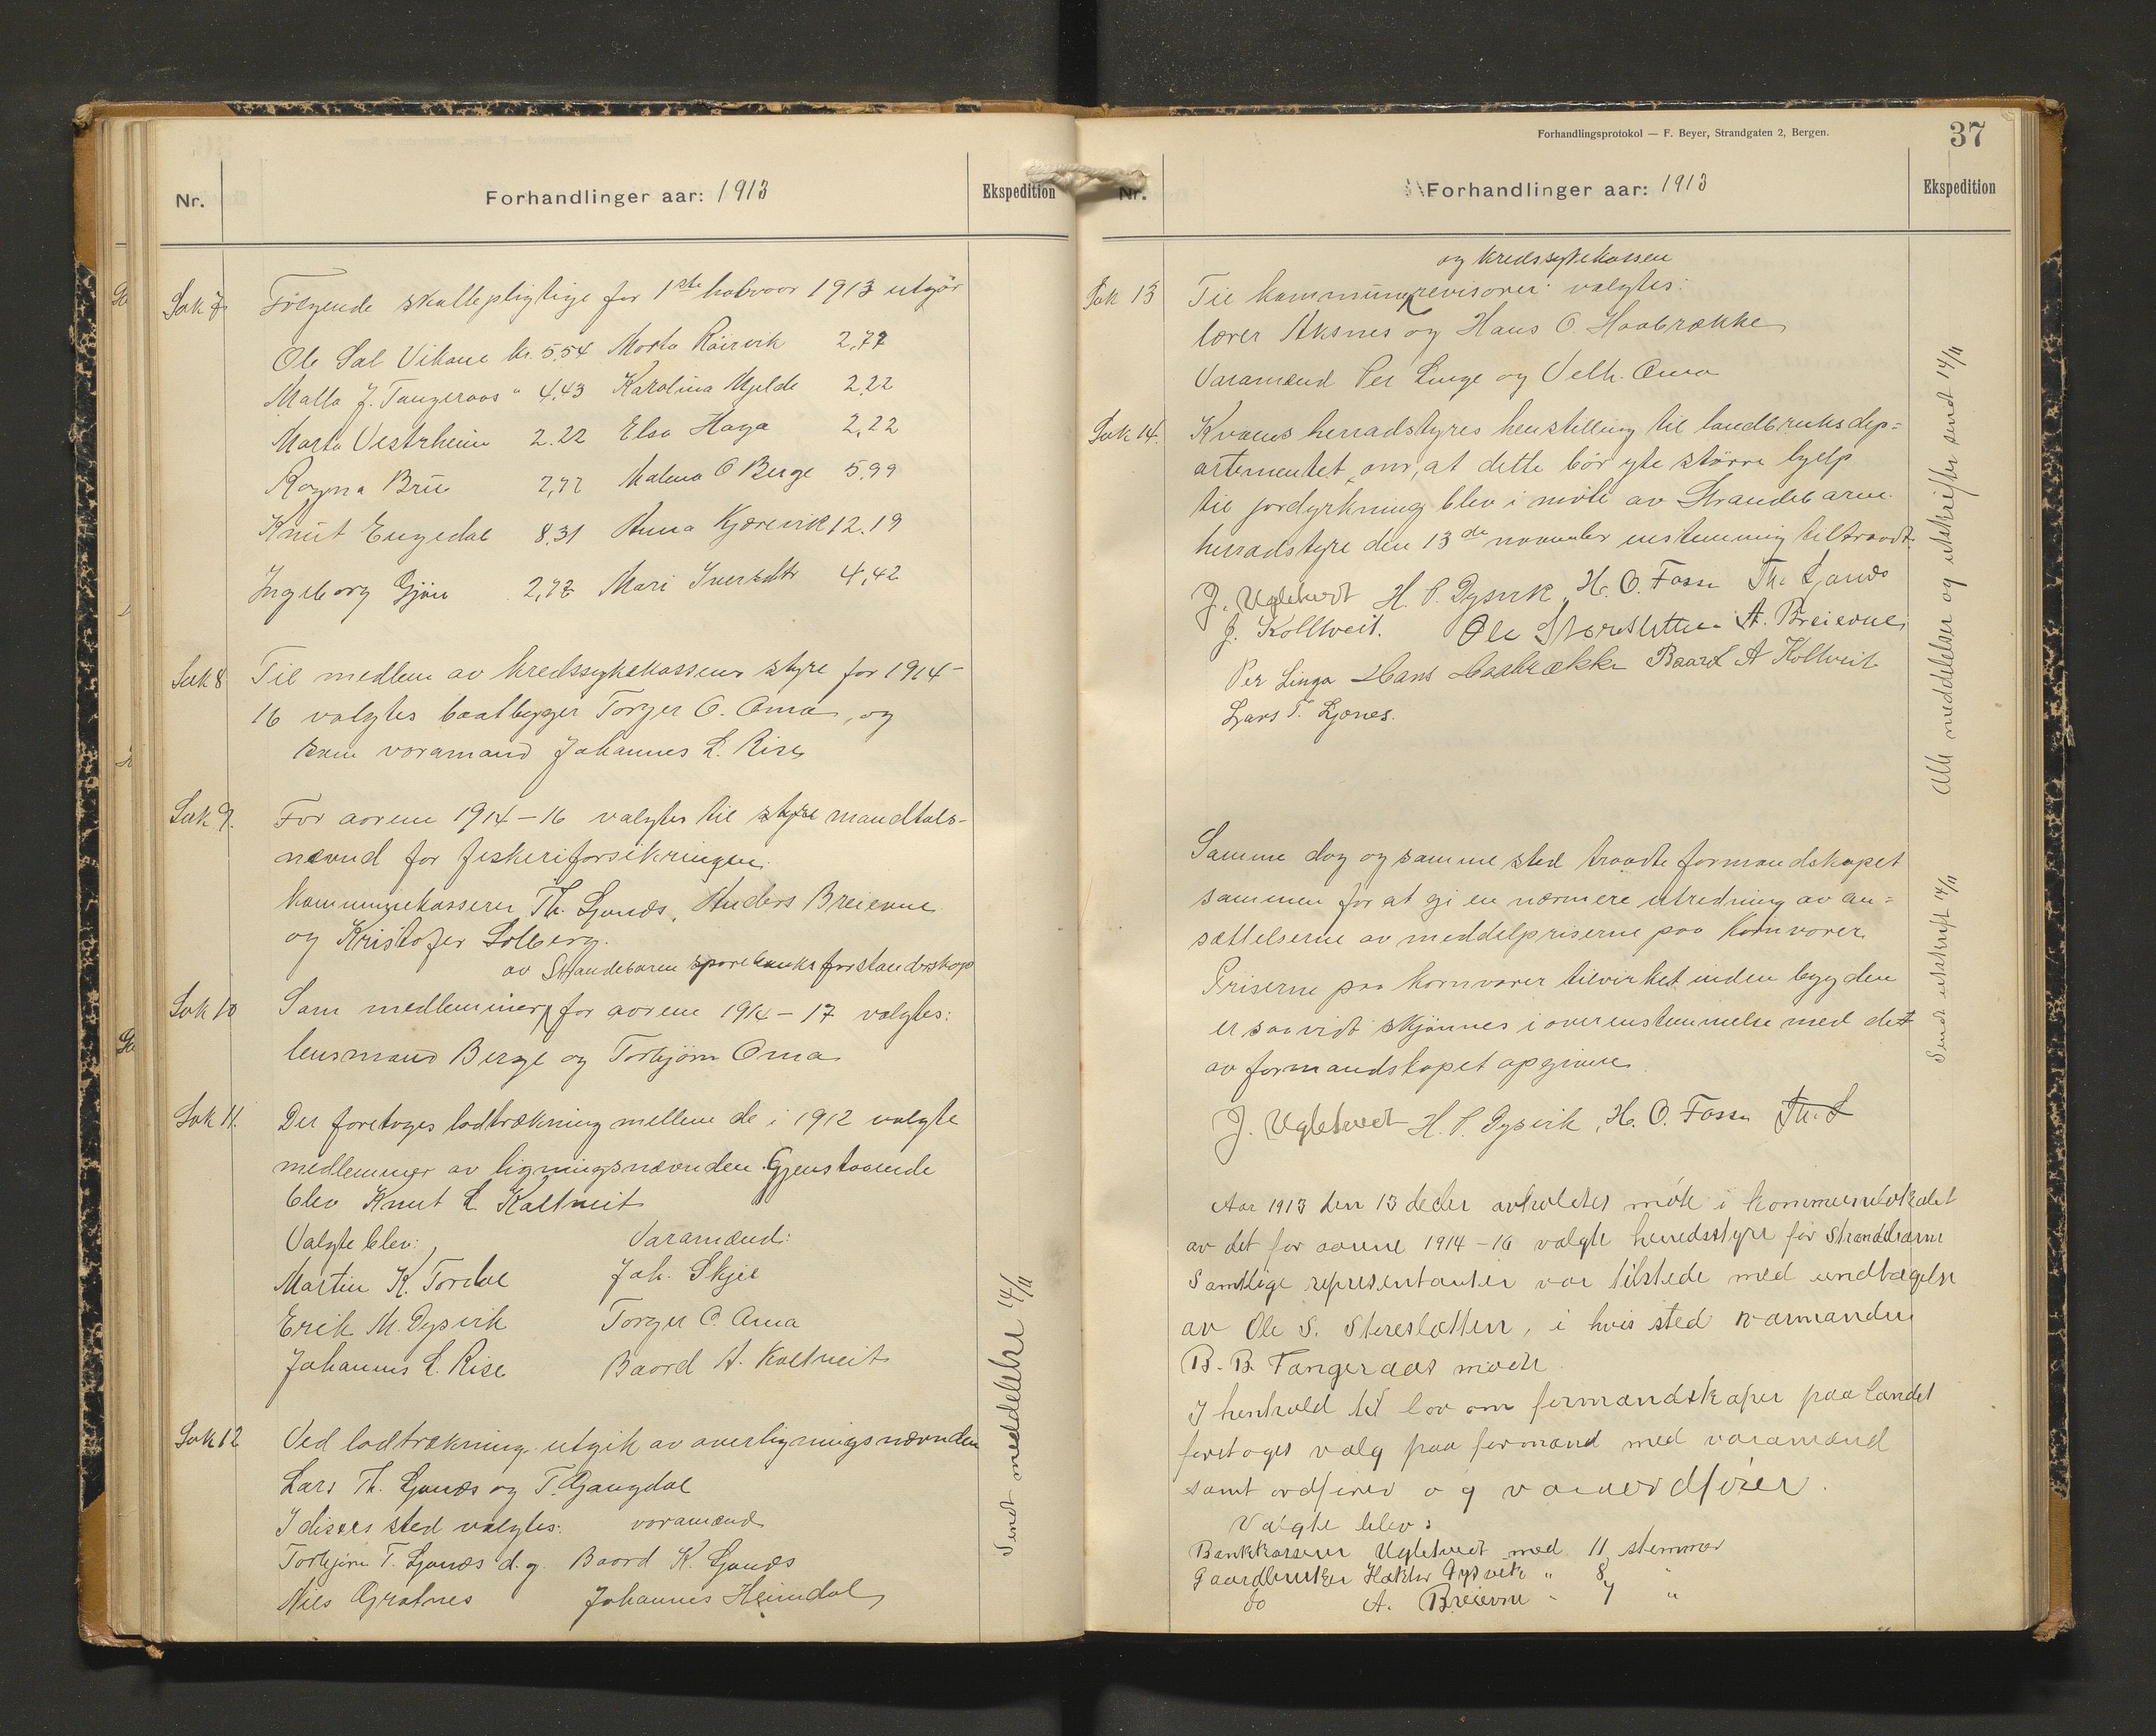 Nr.
Forhandlinger aar: 1913
Ekspedition
Sak 7
Følgende skattepligtige for 1ste halvaar 1913 utgår
Ole Sal Vikane kr. 5.54 Marta Röirvik 2,77
Malla J. Tangeraas " 4.43 Karolina Mjelde 2.22
Marta Vestrheim 2.22 Elsa Haga 2,22
Ragna Bru 2,77 Malena O Berge 5,99
Knut Engedal 8.31 Anna Kjærevik 12.19
Ingeborg Gjøn 2,72 Mari Iversdtr 4,42
Sak 8
Til medlem av kredssykekassens styre for 1914-
16 valgtes baatbygger Torger O. Oma, og
som varamand Johannes L. Rise
Sak 9.
For aarene 1914-16 valgtes til styre mandtals-
nævnd for fiskeriforsikringen.
kommunekasserer Th. Ljonæs, Anders Breievne
og Kristofer Solberg.
av Strandebarm sparebanks forstanderskap
Sak 10
Som medlemmer for aarene 1914-17 valgtes:
lensmand Berge og Torbjørn Oma
Sak 11.
Der foretoges lodtrækning mellem de i 1912 valgte
medlemmer av ligningsnævnden. Gjenstaaende
blev Knut L. Koltveit
Valgte blev: Varamænd:
Martin K. Tordal Joh. Skjel
Erik M. Dysvik Torger O. Oma
Johannes L. Rise Baard A. Koltveit
Sak 12
Ved lodtrækning utgik av overligningsnævnden
Lars Th. Ljonæs og T. Gangdal
I disses sted valgtes: varamænd
Torbjørn T. Ljonæs d.y. Baard K. Ljonæs
Nils Ograthes Johannes Heimdal
Sendt meddelelse 14/11
Forhandlingsprotokol — F. Beyer, Strandgaten 2, Bergen.
37
Nr.
Forhandlinger aar: 1913
Ekspedition
og kredssykekassen
Sak 13
Til kommunerevisorer valgtes:
lærer Aksnes og Hans O. Haabrække
Varamænd Per Linge og Velh. Oma
Sak 14.
Kvams herradstyres henstilling til landbruksdep=
artementet om, at dette bør yte större hjelp
til jordyrkning blev i möte av Strandebarm
herradstyre den 13de november enstemmig tiltraadt.
J. Ugletvedt H. P. Dysvik, H. O. Fosse Th. Ljonæs
J. Koltveit. Ole Storesletten A. Breievne
Per Linga Hans Haabrække Baard A Koltveit
Lars T. Ljones.
Alle meddelelser og utskrifter send 14/11
Samme dag og samme sted traadte formandskapet
sammen for at gi en nærmere utredning av an=
sættelserne av meddelpriserne paa kornvarer.
Priserne paa kornvarer tilvirket inden bygden
er saavidt skjönnes i overenstemmelse med det
av formandskapet opgivne
J. Ugletvedt H. P. Dysvik, H. O. Fosse Th. L
Sendt utskrift 14/11
Aar 1913 den 13 decbr avholdtes möte i kommunelokalet
av det for aarene 1914-16 valgte herredsstyre for Strandebarm
Samtlige representanter var tilstede med undtagelse
av Ole S. Storesletten, i hvis sted varmanden
B. B. Tangeraas mödte.
I henhold til lov om formandskaper paa landet
foretoges valg paa formænd med varamænd
samt ordförer og varaordförer.
Valgte blev:
Bankkasserer Ugletvedt med 11 stemmer
Gaardbruker Haktor Dysvik " 8 "
do A. Breievne " 7 "